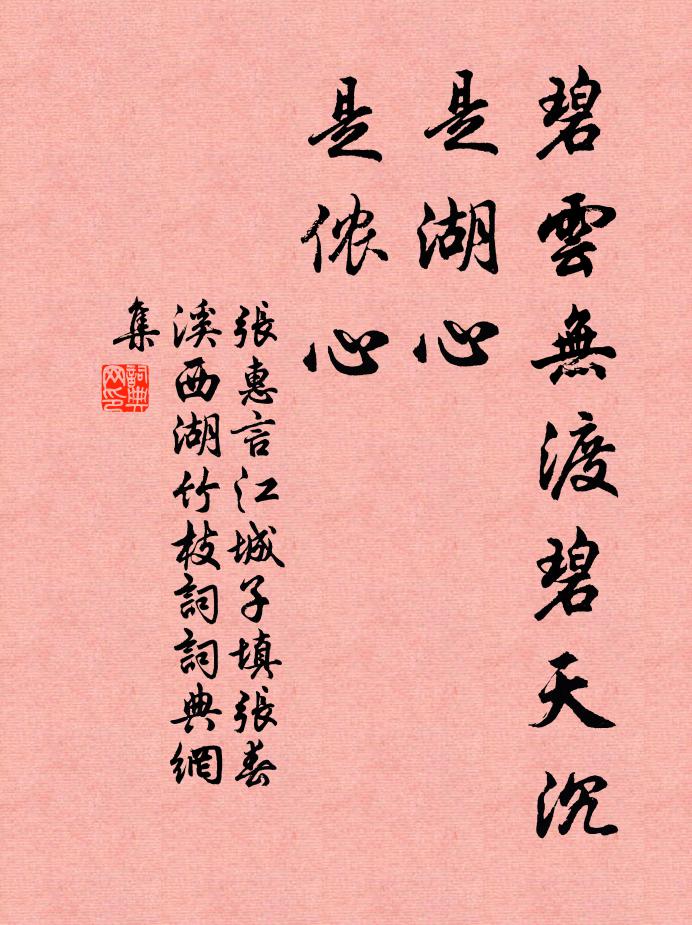 碧雲無渡碧天沉
是湖心
是侬心
張惠言江城子填張春
溪西湖竹枝詞詞典網
集
詞典
网印